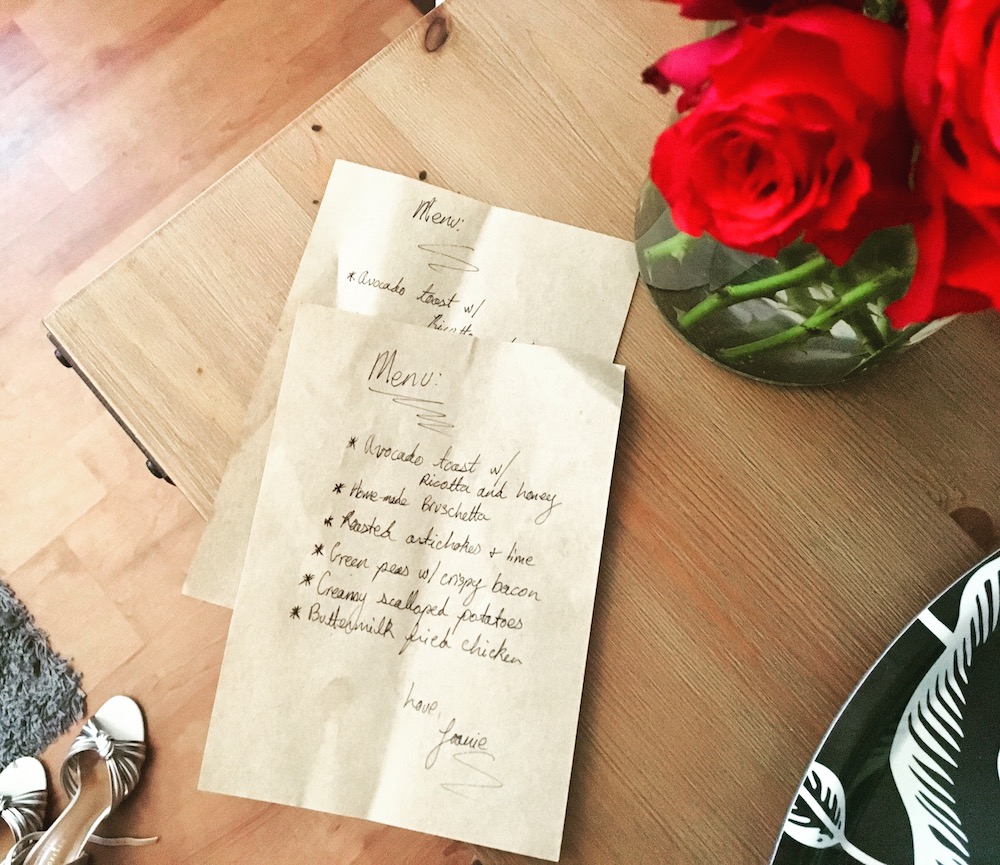 Menu:
*Avocado toast w/
Ricotta
Menu:
* Avocado toast w/
Ricotta and honey
* Home-made Bruschetta
* Roasted artichokes + lime
* Green peas w/ crispy bacon
* Creamy scalloped potatoes
* Buttermilk fried chicken
Love,
Joanie